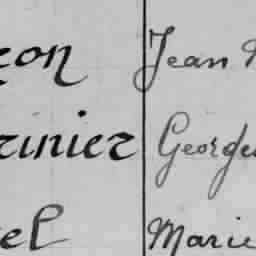 çon Jean
rinier Georges
el Marie